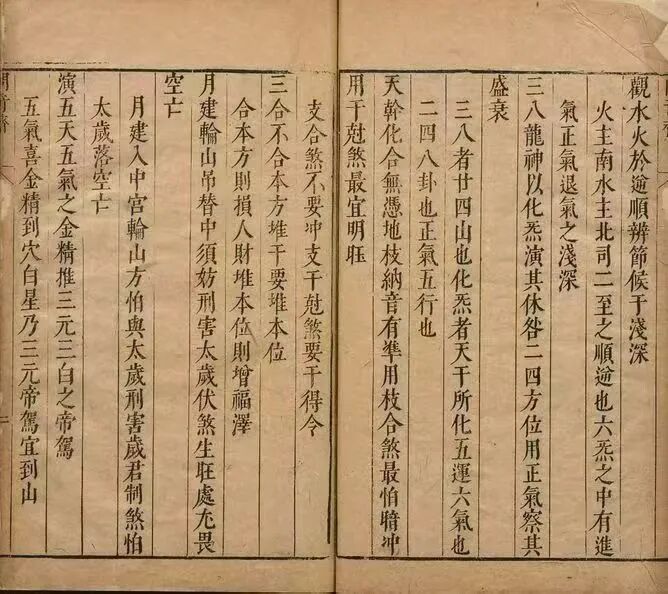 觀水火於逆順辨節候于淺深
火主南水主北司二至之順逆也六炁之中有進
氣正氣退氣之淺深
三八龍神以化炁演其休咎二四方位用正氣察其
盛衰
三八者廿四山也化炁者天干所化五運六氣也
二四八卦也正氣五行也
天幹化合無憑地枝納音有準用枝合煞最怕暗冲
用干尅煞最宜明旺
支合煞不要冲支干尅煞要干得令
三合不合本方堆干要堆本位
合本方則損人財堆本位則增福澤
月建輪山吊替中須妨刑害太歲伏煞生旺處尢畏
空亡
月建入中宮輪山方怕與太歲刑害歲君制煞怕
太歲落空亡
演五天五氣之金精推三元三白之帝駕
五氣喜金精到穴白星乃三元帝駕宜到山